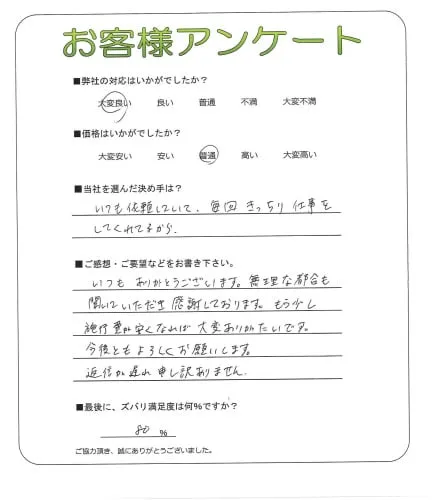 お客様アンケート
■弊社の対応はいかがでしたか?
大変良い 良い 普通 不満 大変不満
■価格はいかがでしたか?
大変安い 安い 普通 高い 大変高い
■当社を選んだ決め手は?
いつも依頼していて、毎回きっちり仕事を
してくれてるから.
■ご感想・ご要望などをお書き下さい。
いつもありがとうございます。無理な都合も
聞いていただき感謝しております。もう少し
施行費が安くなれば大変ありがたいです。
今後ともよろしくお願いします。
返信が遅れ申し訳ありません.
■最後に、ズバリ満足度は何%ですか?
80 %
ご協力頂き、誠にありがとうございました。